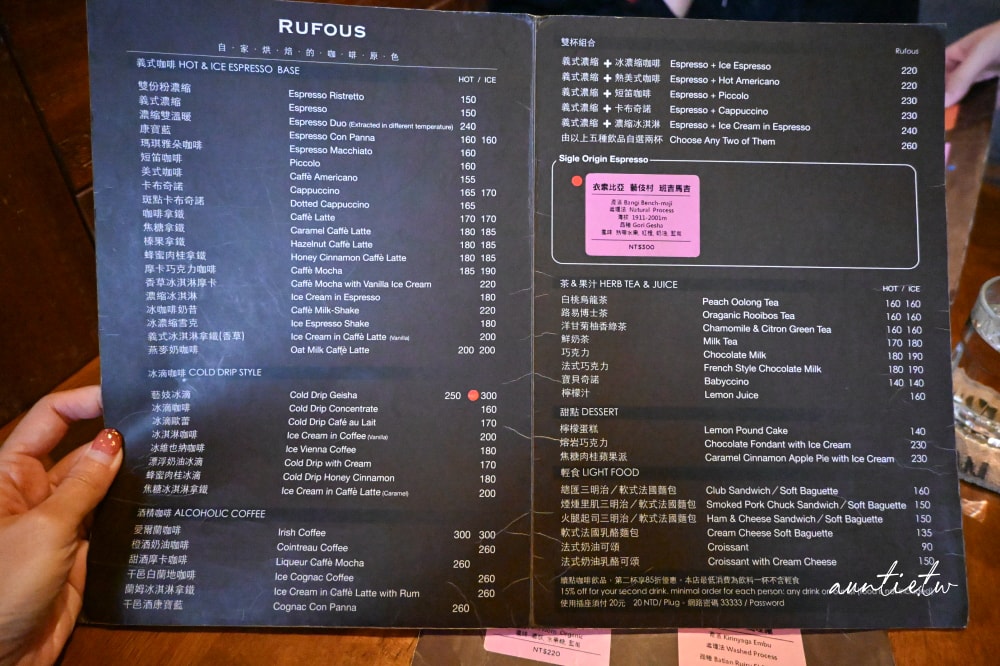 RUFOUS
自‧家‧烘‧焙‧的‧咖‧啡‧原‧色
義式咖啡 HOT & ICE ESPRESSO BASE HOT / ICE
雙份粉濃縮 Espresso Ristretto 150
義式濃縮 Espresso 150
濃縮雙溫暖 Espresso Duo (Extracted in different temperature) 240
康寶藍 Espresso Con Panna 160 160
瑪琪雅朵咖啡 Espresso Macchiato 160
短笛咖啡 Piccolo 160
美式咖啡 Caffè Americano 155
卡布奇諾 Cappuccino 165 170
斑點卡布奇諾 Dotted Cappuccino 165
咖啡拿鐵 Caffè Latte 170 170
焦糖拿鐵 Caramel Caffè Latte 180 185
榛果拿鐵 Hazelnut Caffè Latte 180 185
蜂蜜肉桂拿鐵 Honey Cinnamon Caffè Latte 180 185
摩卡巧克力咖啡 Caffè Mocha 185 190
香草冰淇淋摩卡 Caffè Mocha with Vanilla Ice Cream 220
濃縮冰淇淋 Ice Cream in Espresso 180
冰咖啡奶昔 Caffè Milk-Shake 220
冰濃縮雪克 Ice Espresso Shake 180
義式冰淇淋拿鐵(香草) Ice Cream in Caffè Latte (Vanilla) 200
燕麥奶咖啡 Oat Milk Caffè Latte 200 200
冰滴咖啡 COLD DRIP STYLE
藝妓冰滴 Cold Drip Geisha 250 300
冰滴咖啡 Cold Drip Concentrate 160
冰滴歐蕾 Cold Drip Café au Lait 170
冰淇淋咖啡 Ice Cream in Coffee (Vanilla) 200
冰維也納咖啡 Ice Vienna Coffee 180
漂浮奶油冰滴 Cold Drip with Cream 170
蜂蜜肉桂冰滴 Cold Drip Honey Cinnamon 180
焦糖冰淇淋拿鐵 Ice Cream in Caffè Latte (Caramel) 200
酒精咖啡 ALCOHOLIC COFFEE
愛爾蘭咖啡 Irish Coffee 300 300
橙酒奶油咖啡 Cointreau Coffee 260
甜酒摩卡咖啡 Liqueur Caffè Mocha 260
干邑白蘭地咖啡 Ice Cognac Coffee 260
蘭姆冰淇淋拿鐵 Ice Cream in Caffè Latte with Rum 260
干邑酒康寶藍 Cognac Con Panna 260
雙杯組合 Rufous
義式濃縮 + 冰濃縮咖啡 Espresso + Ice Espresso 220
義式濃縮 + 熱美式咖啡 Espresso + Hot Americano 220
義式濃縮 + 短笛咖啡 Espresso + Piccolo 230
義式濃縮 + 卡布奇諾 Espresso + Cappuccino 230
義式濃縮 + 濃縮冰淇淋 Espresso + Ice Cream in Espresso 240
由以上五種飲品自選兩杯 Choose Any Two of Them 260
Sigle Origin Espresso
衣索比亞 藝伎村 班吉馬吉
產區 Bangi Bench-maji
處理法 Natural Process
海拔 1911-2001m
品種 Gori Gesha
風味 熱帶水果, 紅橙, 奶油,
NT$300
茶&果汁 HERB TEA & JUICE HOT / ICE
白桃烏龍茶 Peach Oolong Tea 160 160
路易博士茶 Oraganic Rooibos Tea 160 160
洋甘菊柚香綠茶 Chamomile & Citron Green Tea 160 160
鮮奶茶 Milk Tea 170 180
巧克力 Chocolate Milk 180 190
法式巧克力 French Style Chocolate Milk 180 190
寶貝奇諾 Babyccino 140 140
檸檬汁 Lemon Juice 160
甜點 DESSERT
檸檬蛋糕 Lemon Pound Cake 140
熔岩巧克力 Chocolate Fondant with Ice Cream 230
焦糖肉桂蘋果派 Caramel Cinnamon Apple Pie with Ice Cream 230
輕食 LIGHT FOOD
總匯三明治／軟式法國麵包 Club Sandwich／Soft Baguette 160
煙燻里肌三明治／軟式法國麵包 Smoked Pork Chuck Sandwich／Soft Baguette 150
火腿起司三明治／軟式法國麵包 Ham & Cheese Sandwich／Soft Baguette 150
軟式法國乳酪麵包 Cream Cheese Soft Baguette 135
法式奶油可頌 Croissant 90
法式奶油乳酪可頌 Croissant with Cream Cheese 150
續點咖啡飲品，第二杯享85折優惠，本店最低消費為飲料一杯不含輕食
15% off for your second drink. minimal order for each person: any drink on
使用插座須付 20元 20 NTD / Plug，網路密碼 33333 / Password
auntietw
NT$220
Kirinyaga Embu
處理法 Washed Process